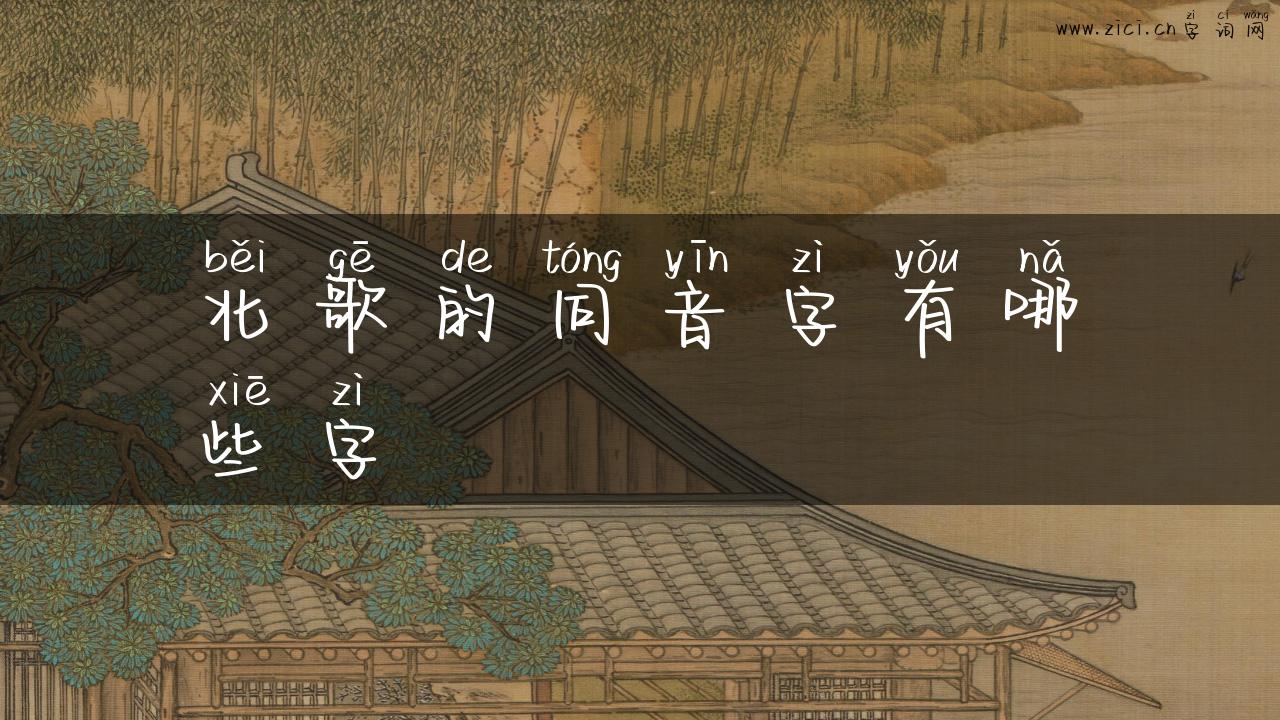 zì cí wǎng
www.zici.cn字词网
běi gē de tóng yīn zì yǒu nǎ
北歌的同音字有哪
xiē zì
些字